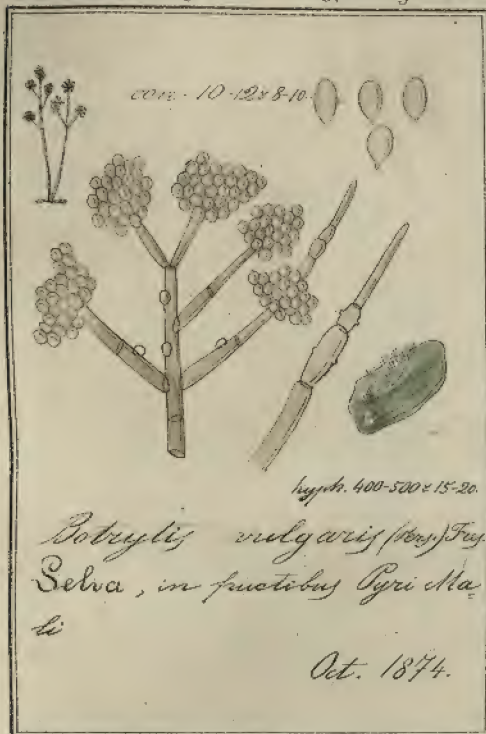 con. 10-12 x 8-10.
hyph. 400-500 x 15-20.
Botrytis vulgaris (Pers.) Fres.
Selva, in fructibus Pyri Ma=
li
Oct. 1874.